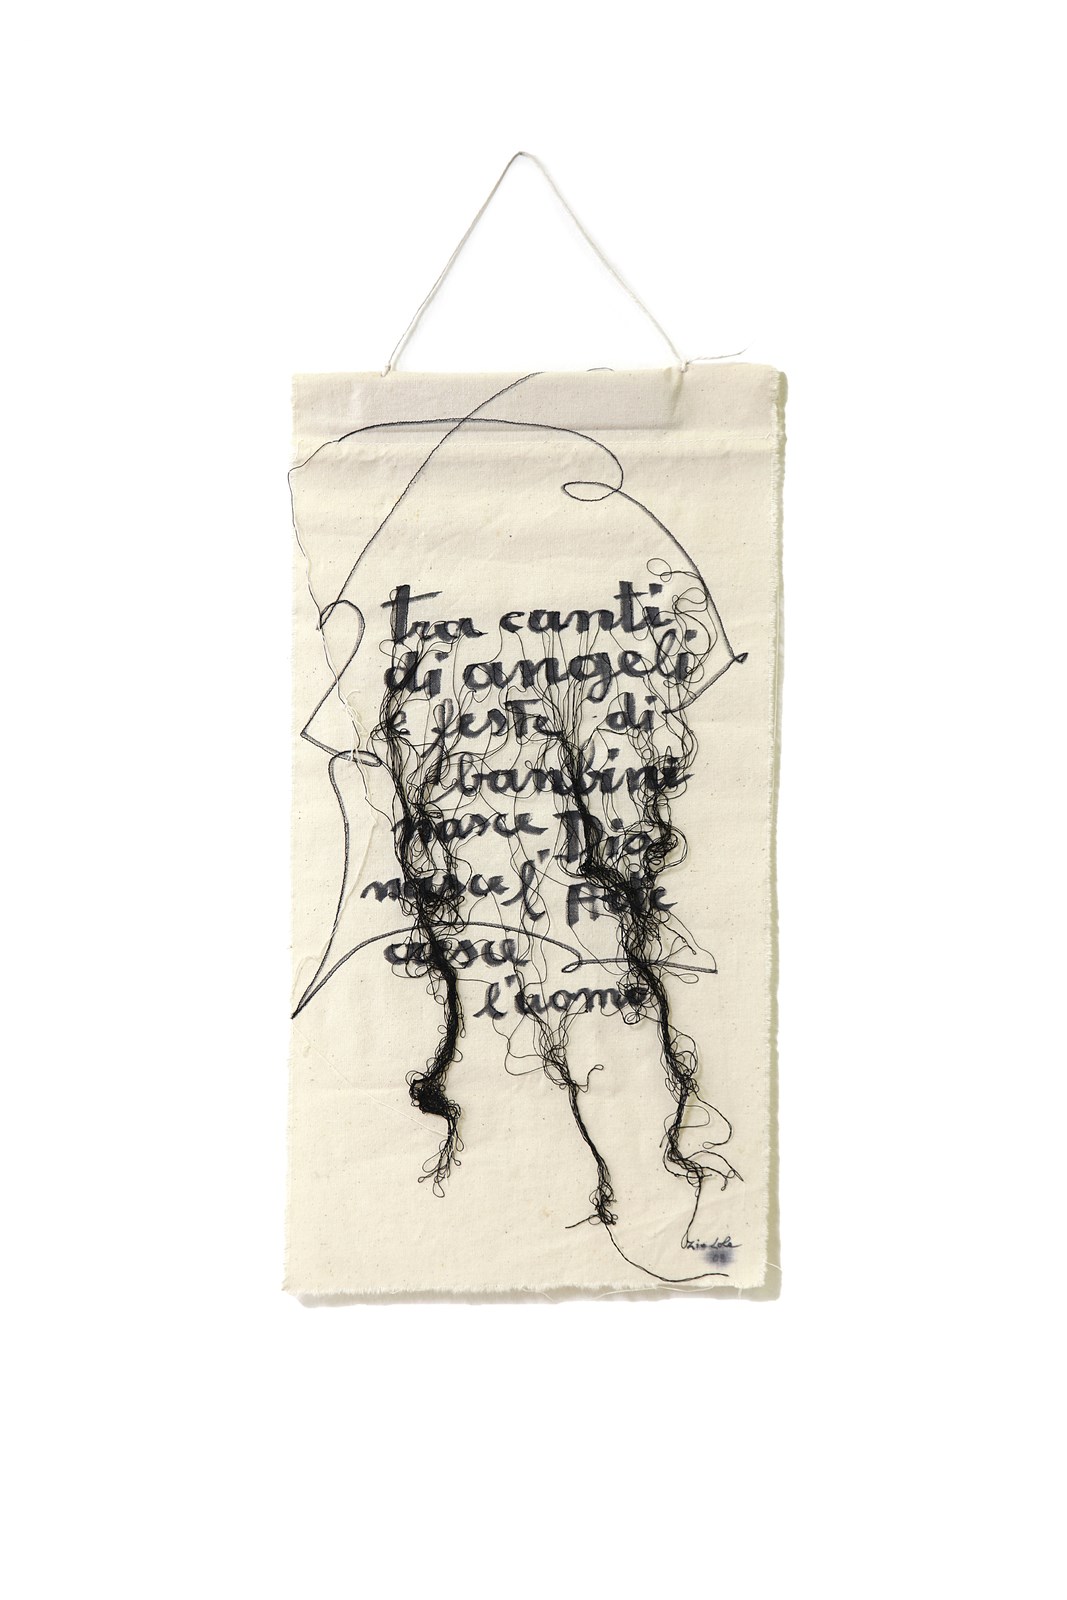 tra canti
di angeli
e feste di
banbini
nasce Dio
nasce l'Arte
cresce
l'uomo